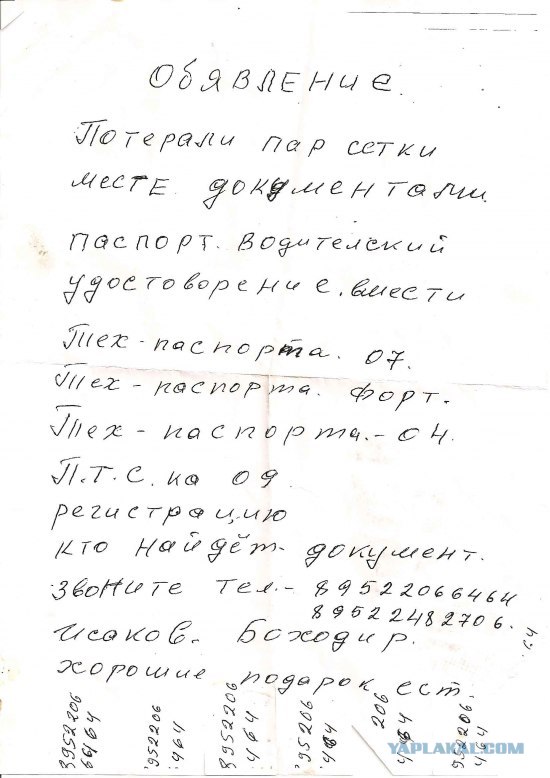 Обявление.
Потерали пар сетки
месте документами.
паспорт. водителский
удостоворение. вмести
Тех-паспорта. 07.
Тех-паспорта. Форт.
Тех-паспорта.-04.
П.Т.С. ка 09
регистрацию
кто найдёт документ.
звоните тел.- 89522066464
89522482706.
Исаков. Боходир.
хорошие подарок ест.
8952206
6464
952206
464
8952206
464
952206
464
206
464
952206.
464
64
YAPLAKAL.COM